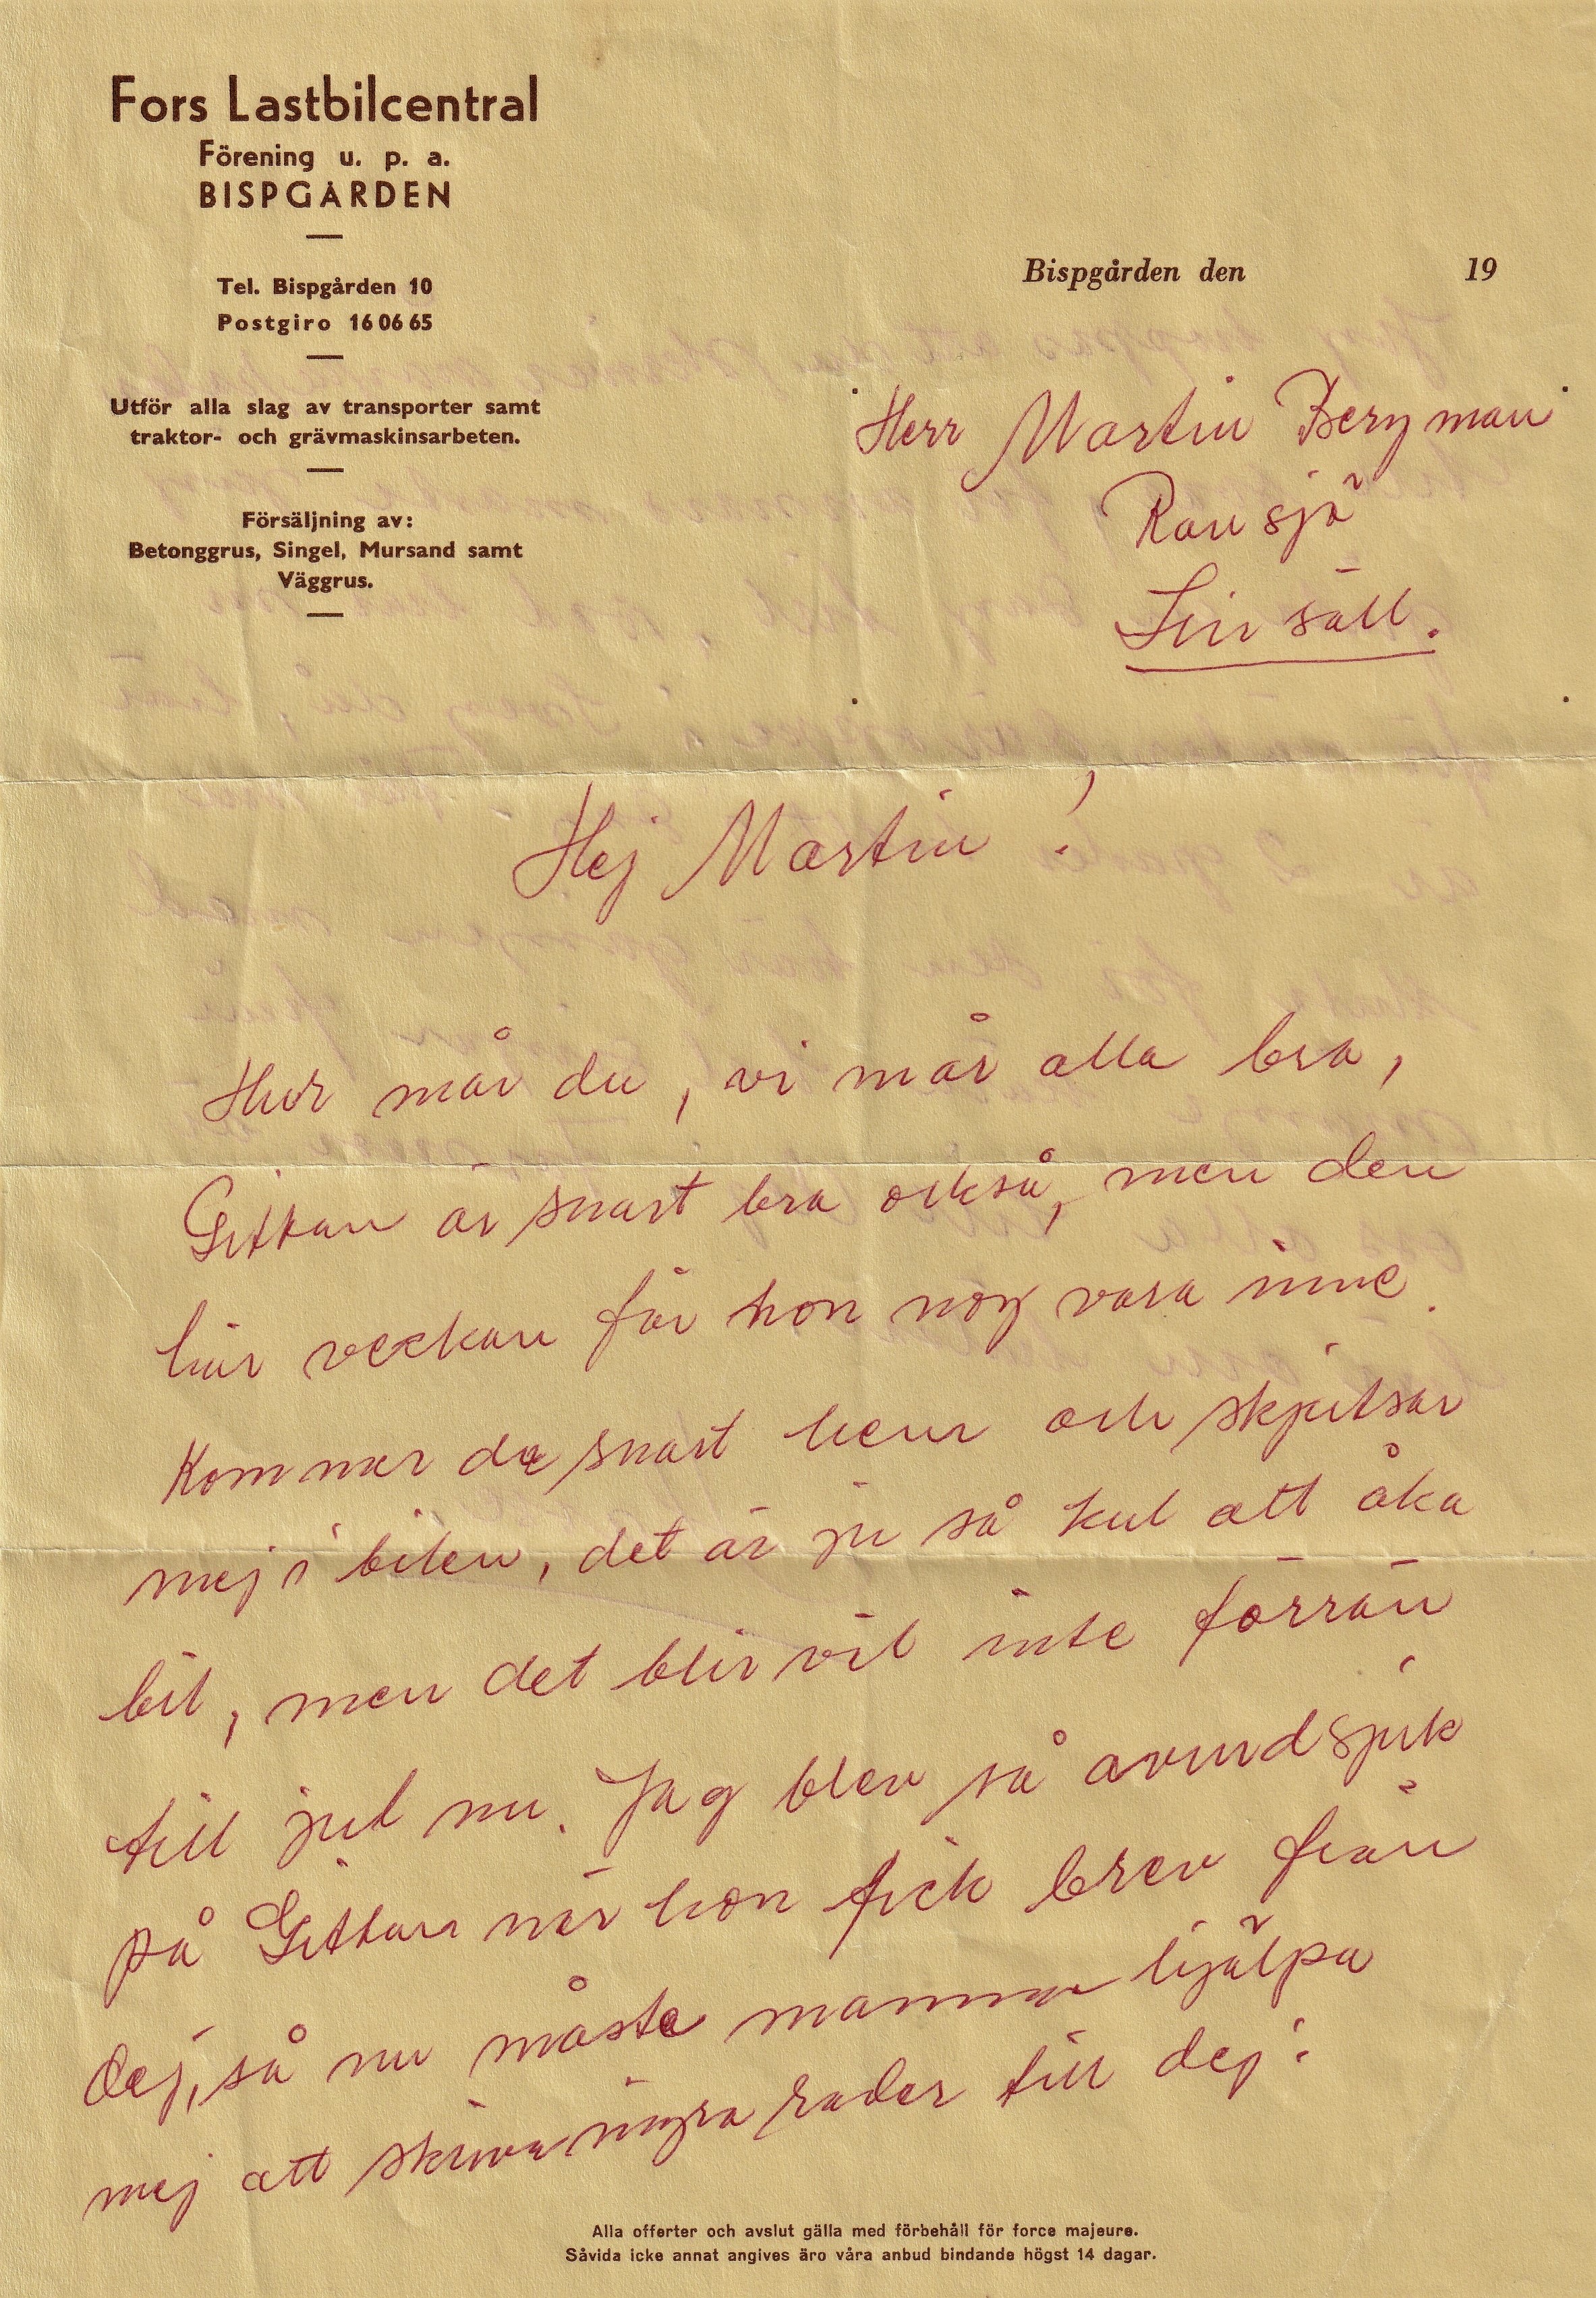 Fors Lastbilcentral
Förening u. p. a.
BISPGÅRDEN
Tel. Bispgården 10
Postgiro 16 06 65
Utför alla slag av transporter samt
traktor- och grävmaskinsarbeten.
Försäljning av:
Betonggrus, Singel, Mursand samt
Väggrus.
Bispgården den 19
Herr Martin Bergman
Ransjö
Linsäll.
Hej Martin!
Hur mår du, vi mår alla bra,
Gittan är snart bra också, men den
här veckan får hon nog vara inne.
Kommer du snart hem och skjutsar
mej i bilen, det är ju så kul att åka
bil, men det blir väl inte förrän
till jul nu. Jag blev så avundsjuk
på Gittan när hon fick brev från
dej, så nu måste mamma hjälpa
mej att skriva några rader till dej.
Alla offerter och avslut gälla med förbehåll för force majeure.
Såvida icke annat angives äro våra anbud bindande högst 14 dagar.